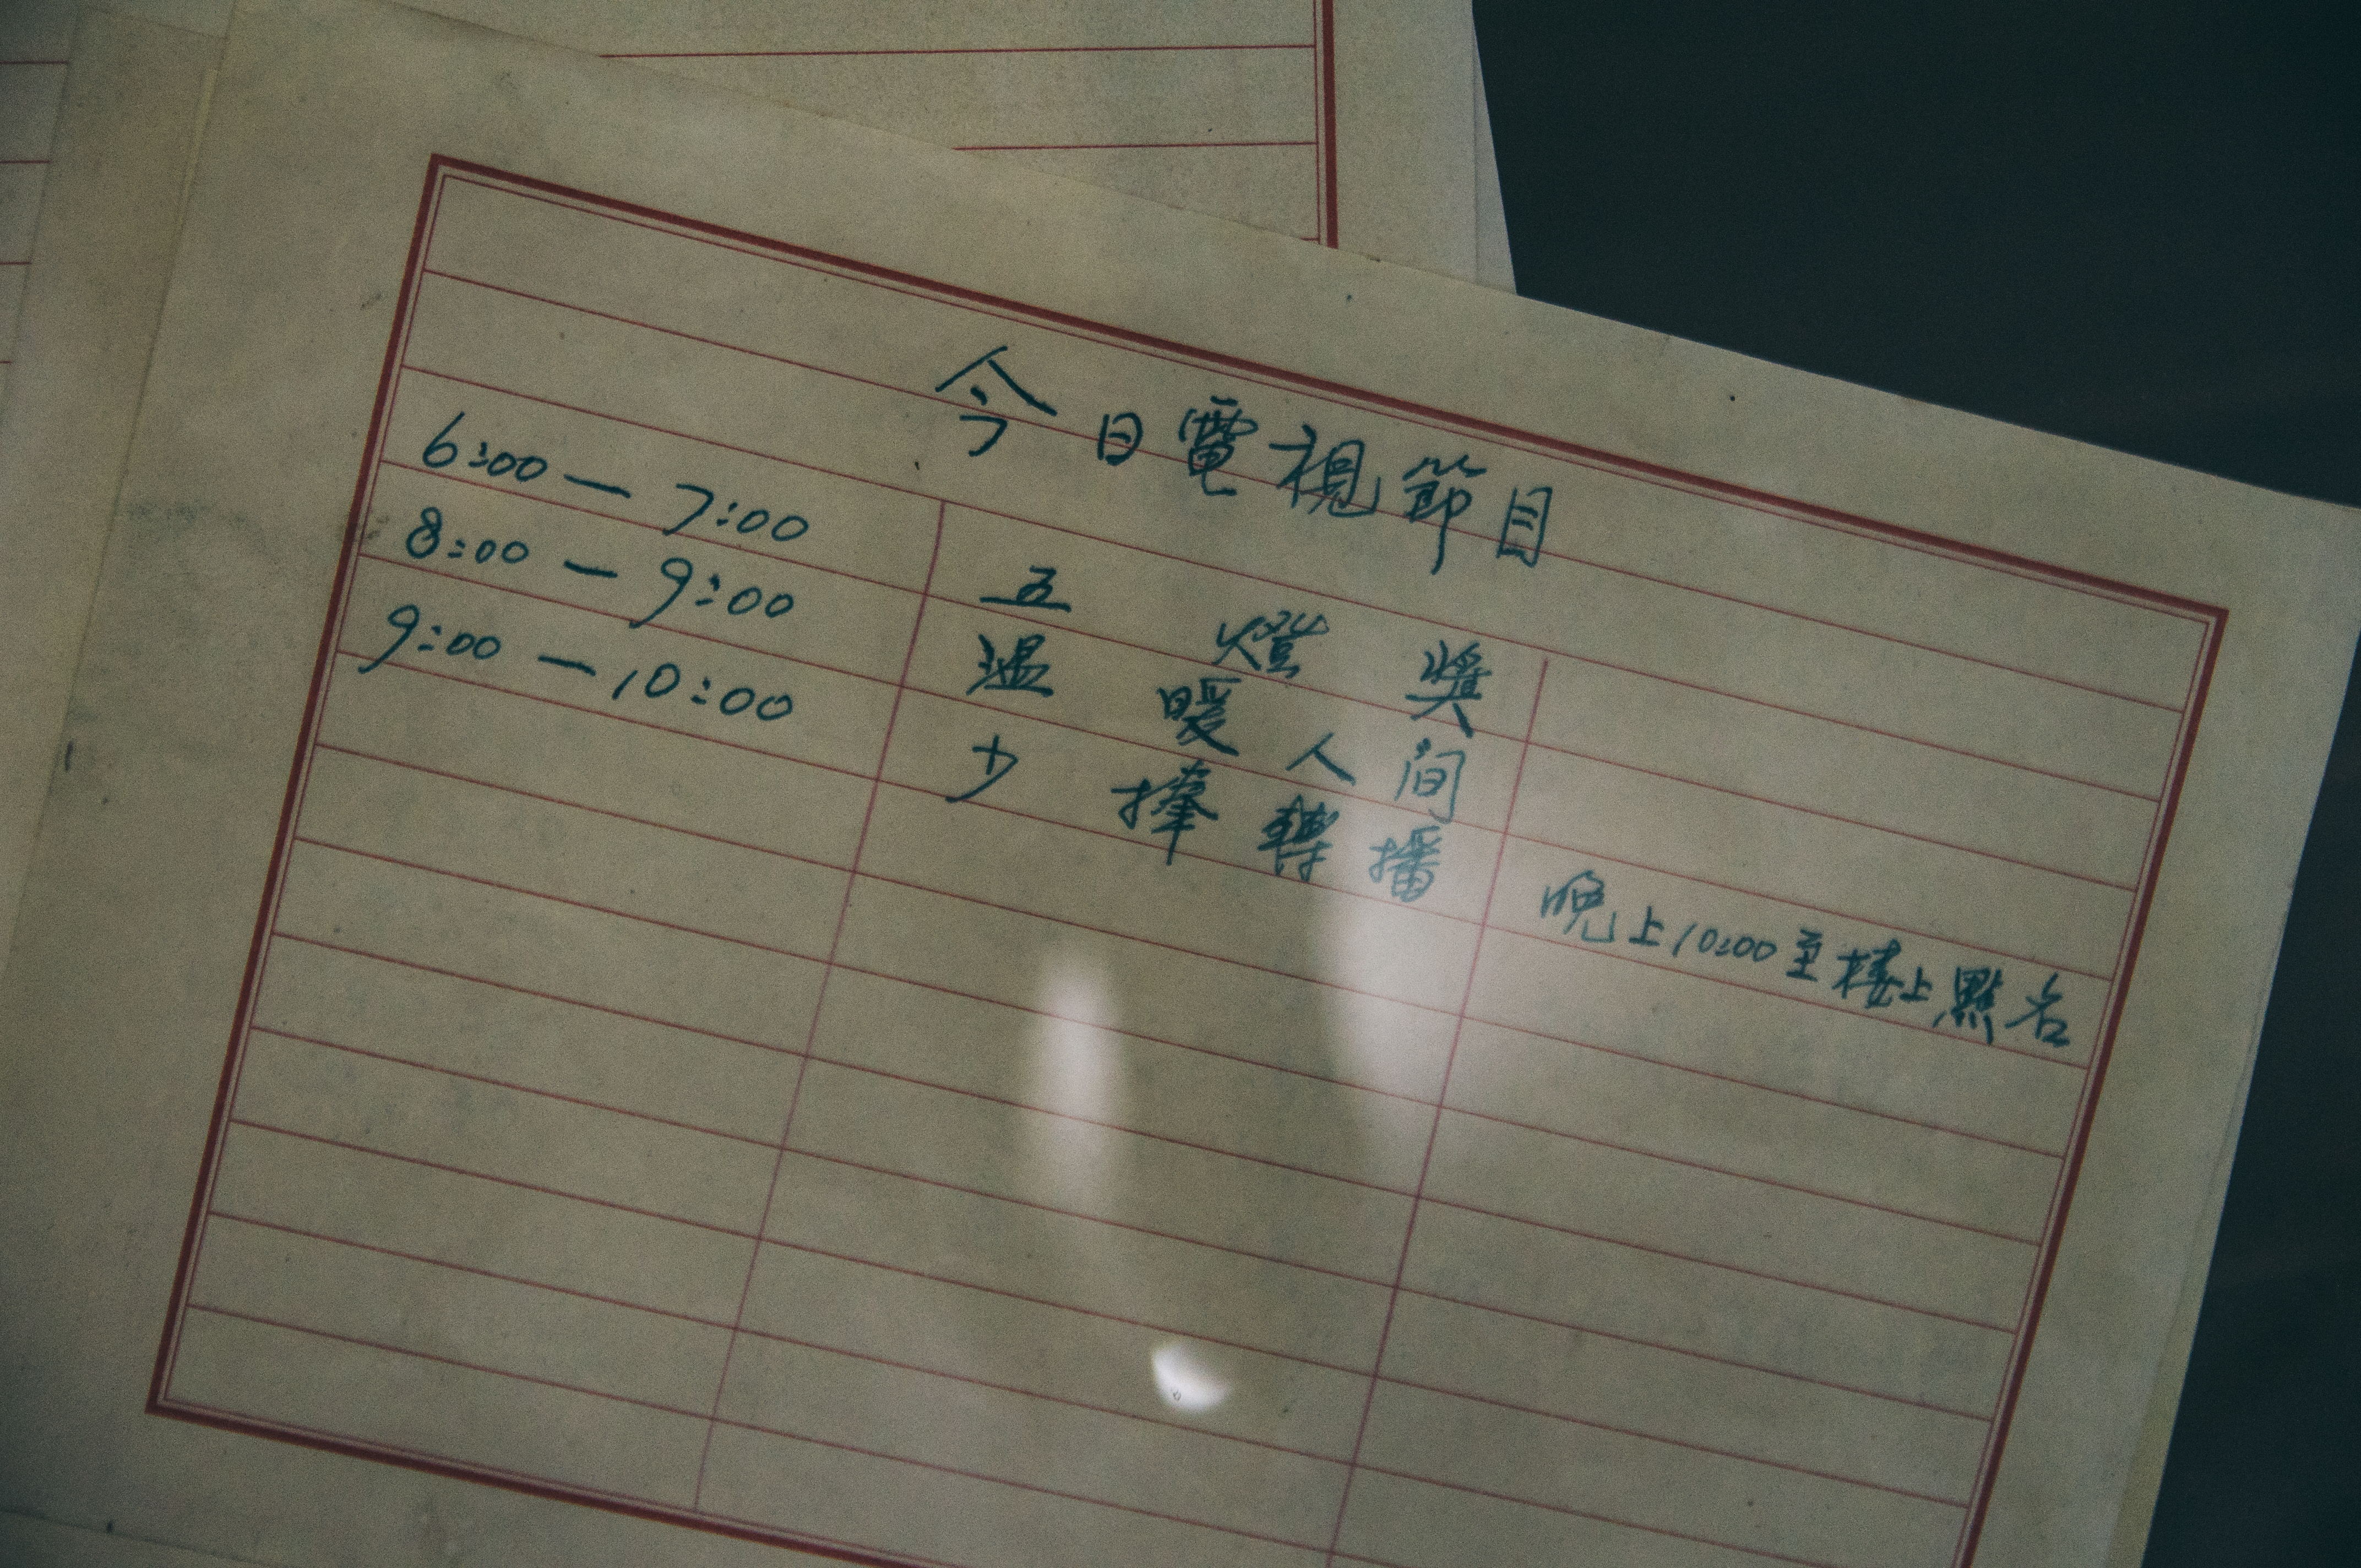 今日電視節目
6:00 — 7:00 五燈獎
8:00 — 9:00 溫暖人间
9:00 — 10:00 少棒轉播
晚上10:00至楼上點名